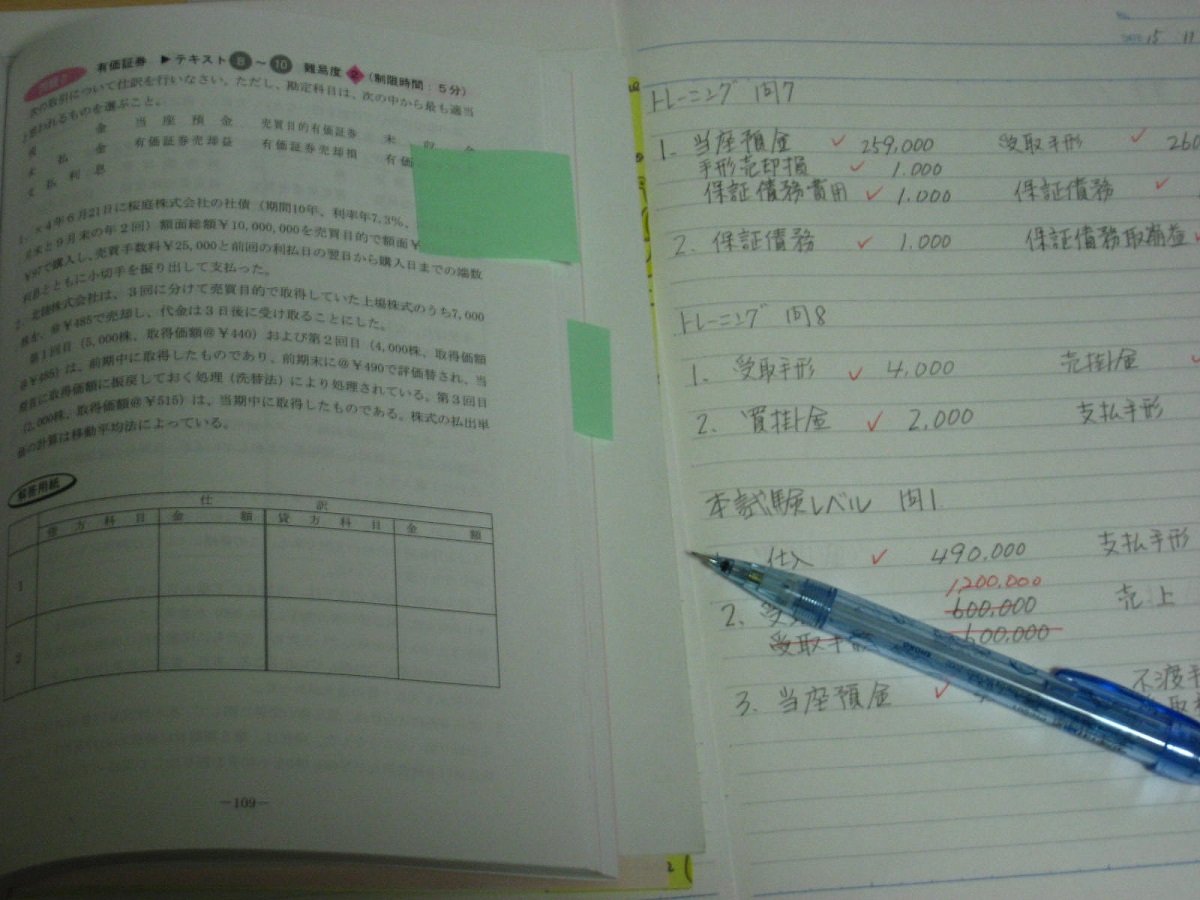 有価証券 ▶テキスト 8 ～ 10 難易度 2 (制限時間：5分)
次の取引について仕訳を行いなさい。ただし、勘定科目は、次の中から最も適当
と思われるものを選ぶこと。
金 当座預金 売買目的有価証券 未収金
未払金 有価証券売却益 有価証券売却損 有価
支払利息
1. ×4年6月21日に桜庭株式会社の社債（期間10年、利率年7.3％、
月末と9月末の年2回）額面総額￥10,000,000を売買目的で額面￥
￥97で購入し、売買手数料￥25,000と前回の利払日の翌日から購入日までの端数
利息とともに小切手を振り出して支払った。
2. 北陸株式会社は、3回に分けて売買目的で取得していた上場株式のうち7,000
株を、＠￥485で売却し、代金は3日後に受け取ることにした。
第1回目（5,000株、取得価額＠￥440）および第2回目（4,000株、取得価額
＠￥485）は、前期中に取得したものであり、前期末に＠￥490で評価替され、当
期首に取得価額に振戻しておく処理（洗替法）により処理されている。第3回目
（2,000株、取得価額＠￥515）は、当期中に取得したものである。株式の払出単
価の計算は移動平均法によっている。
解答用紙
仕訳
借方科目 金額 貸方科目 金額
1
2
－109－
15 11
トレーニング 問7
1. 当座預金 ✓ 259,000 受取手形 ✓ 260
手形売却損 ✓ 1,000
保証債務費用 ✓ 1,000 保証債務 ✓
2. 保証債務 ✓ 1,000 保証債務取崩益 ✓
トレーニング 問8
1. 受取手形 ✓ 4,000 売掛金 ✓
2. 買掛金 ✓ 2,000 支払手形
本試験レベル 問1
仕入 ✓ 490,000 支払手形
1200,000
2. 600,000 売上
受取手形 600,000
3. 当座預金 ✓ 不渡手